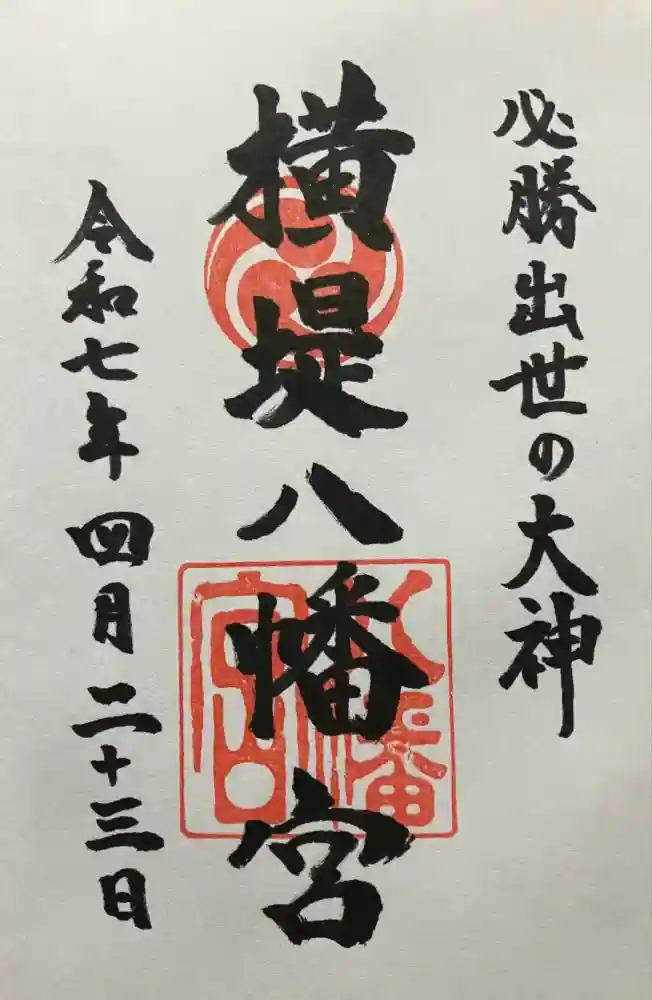 必勝出世の大神
横堤八幡宮
八幡宮印
令和七年四月二十三日